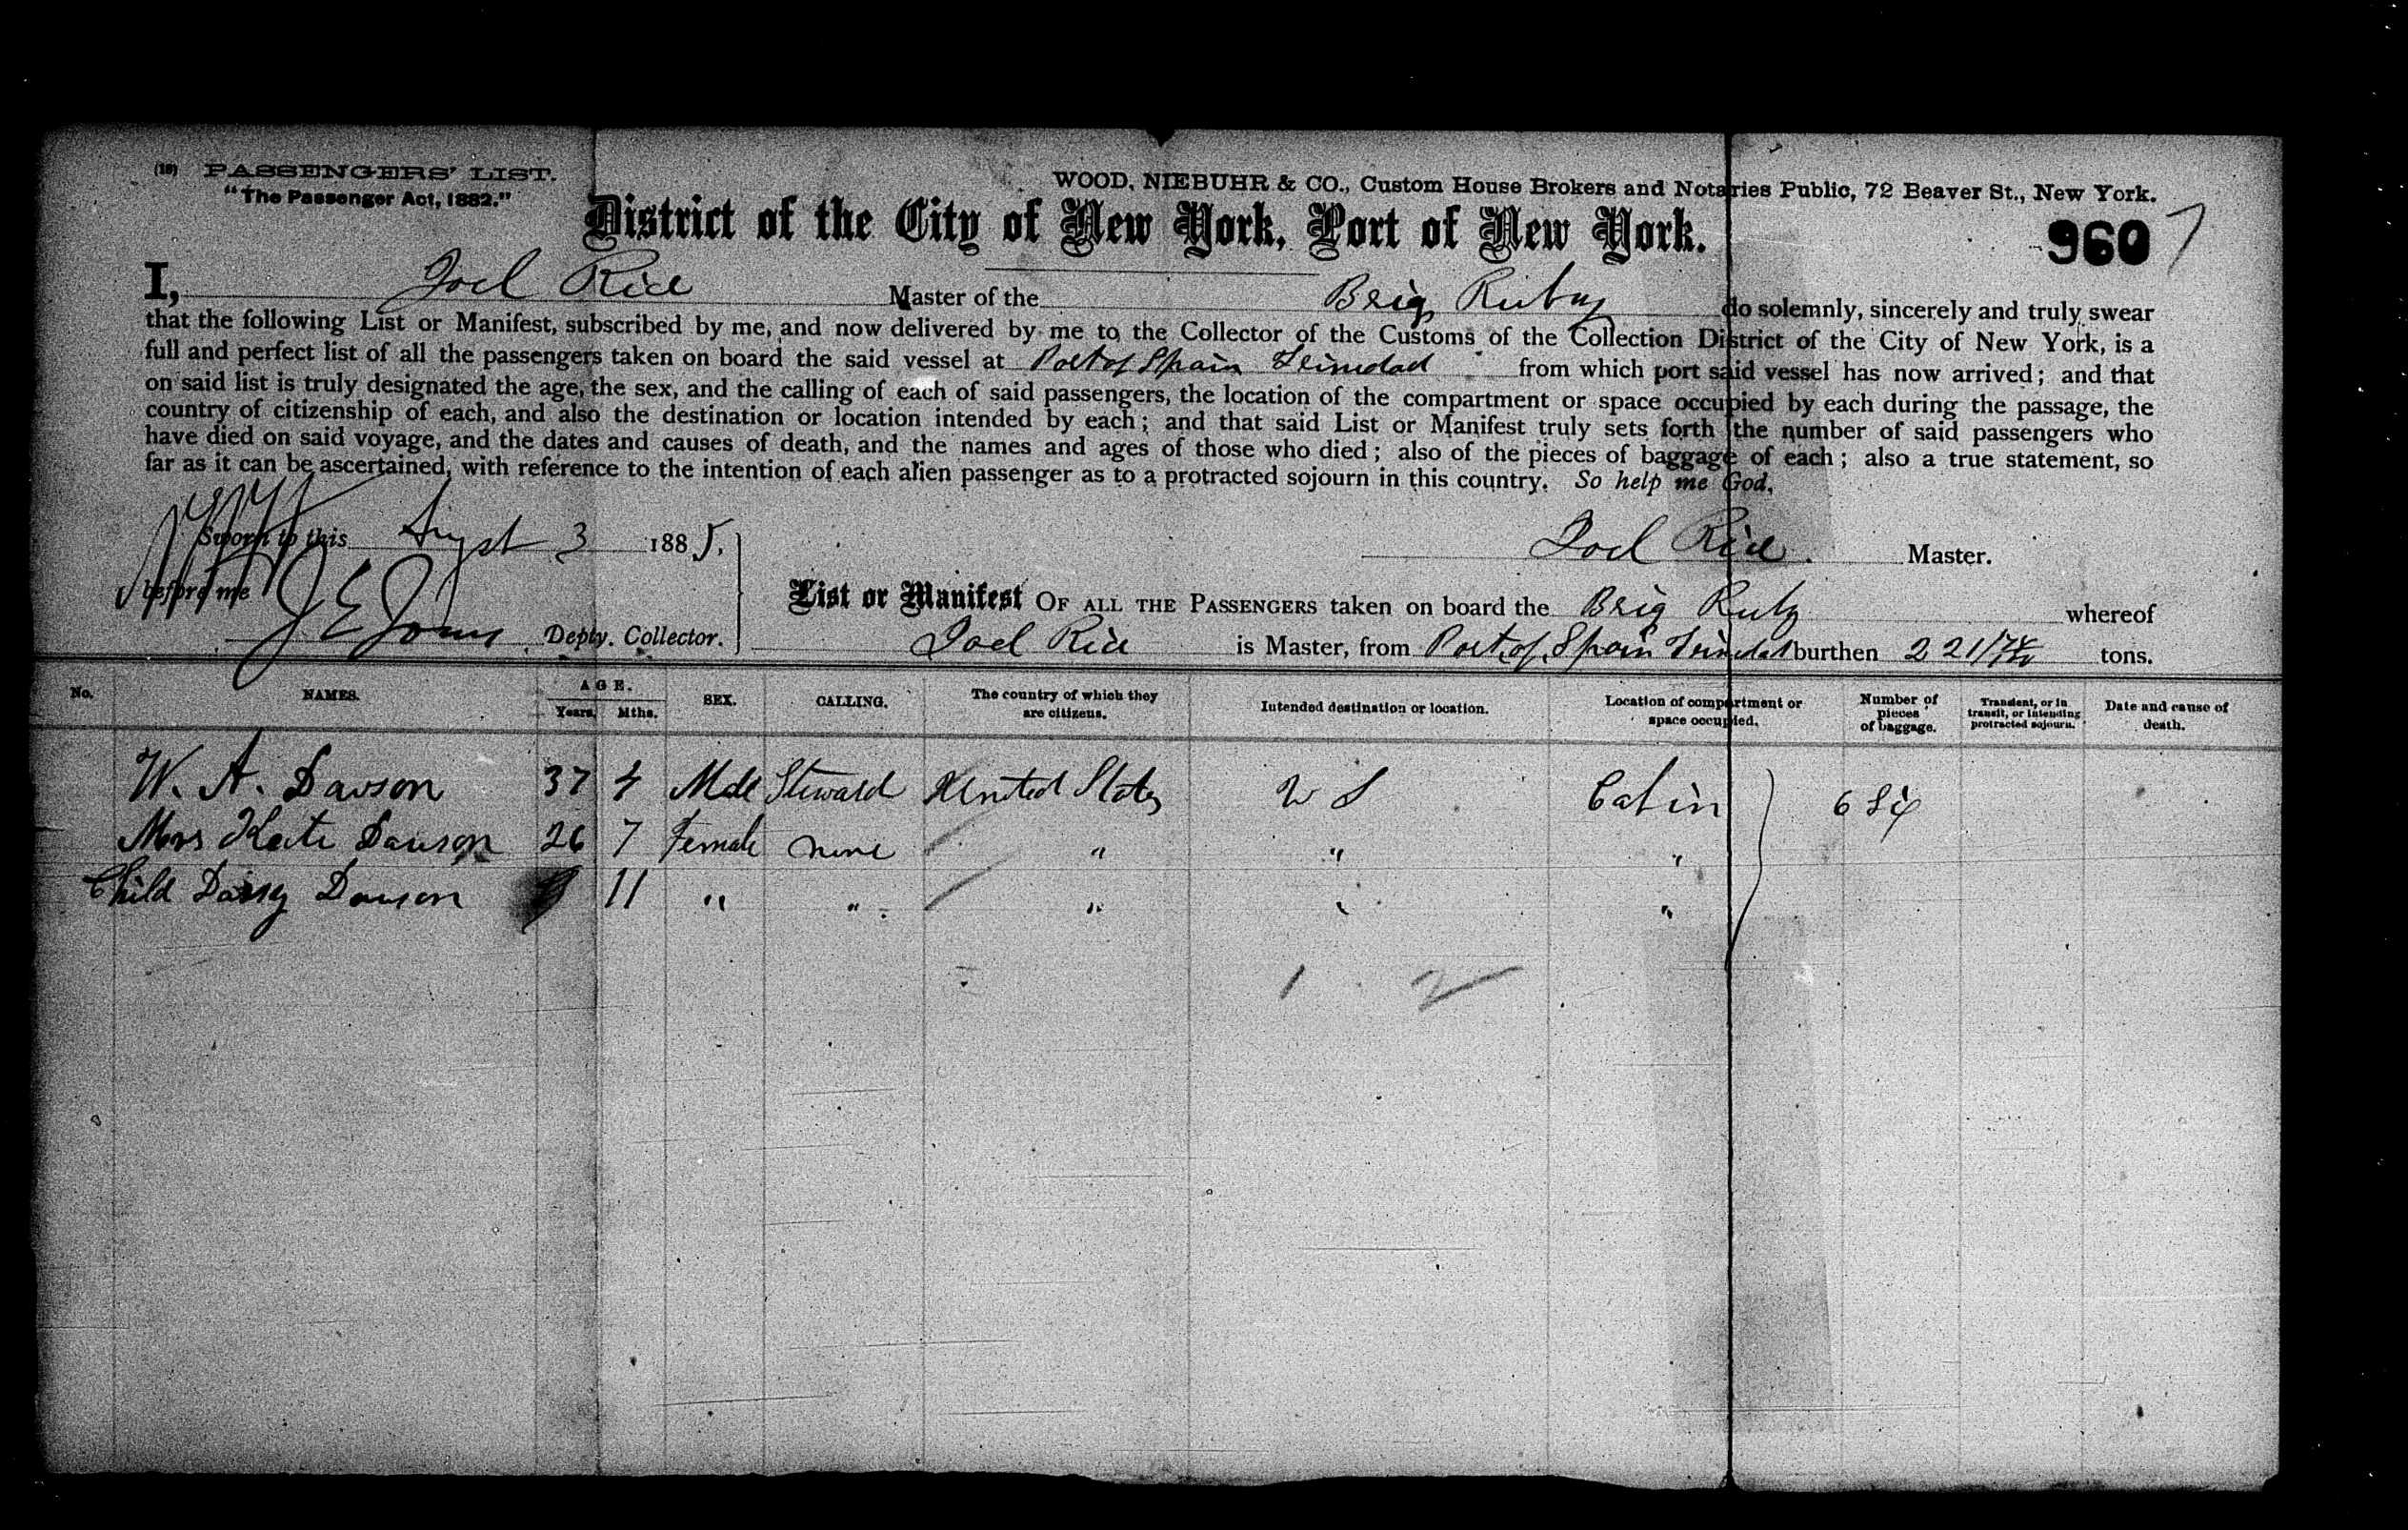 (18) PASSENGERS' LIST.
"The Passenger Act, 1882."
WOOD, NIEBUHR & CO., Custom House Brokers and Notaries Public, 72 Beaver St., New York.
District of the City of New York, Port of New York.
960
I, Joel Rice Master of the Brig Ruby do solemnly, sincerely and truly swear
that the following List or Manifest, subscribed by me, and now delivered by me to the Collector of the Customs of the Collection District of the City of New York, is a
full and perfect list of all the passengers taken on board the said vessel at Port of Spain Trinidad from which port said vessel has now arrived; and that
on said list is truly designated the age, the sex, and the calling of each of said passengers, the location of the compartment or space occupied by each during the passage, the
country of citizenship of each, and also the destination or location intended by each; and that said List or Manifest truly sets forth the number of said passengers who
have died on said voyage, and the dates and causes of death, and the names and ages of those who died; also of the pieces of baggage of each; also a true statement, so
far as it can be ascertained, with reference to the intention of each alien passenger as to a protracted sojourn in this country. So help me God.
Sworn to this Augst 3 1885.
Joel Rice Master.
before me
J E Jones Depty. Collector.
List or Manifest OF ALL THE PASSENGERS taken on board the Brig Ruby whereof
Joel Rice is Master, from Port of Spain Trinidad burthen 221 tons.
No. NAMES. AGE. Years. Mths. SEX. CALLING. The country of which they are citizens. Intended destination or location. Location of compartment or space occupied. Number of pieces of baggage. Transient, or in transit, or intending protracted sojourn. Date and cause of death.
W. A. Dawson 37 4 Male Steward United States U S Cabin 6 Six
Mrs Kate Dawson 26 7 Female none " " "
Child Daisy Dawson 11 " " " " "
1 2